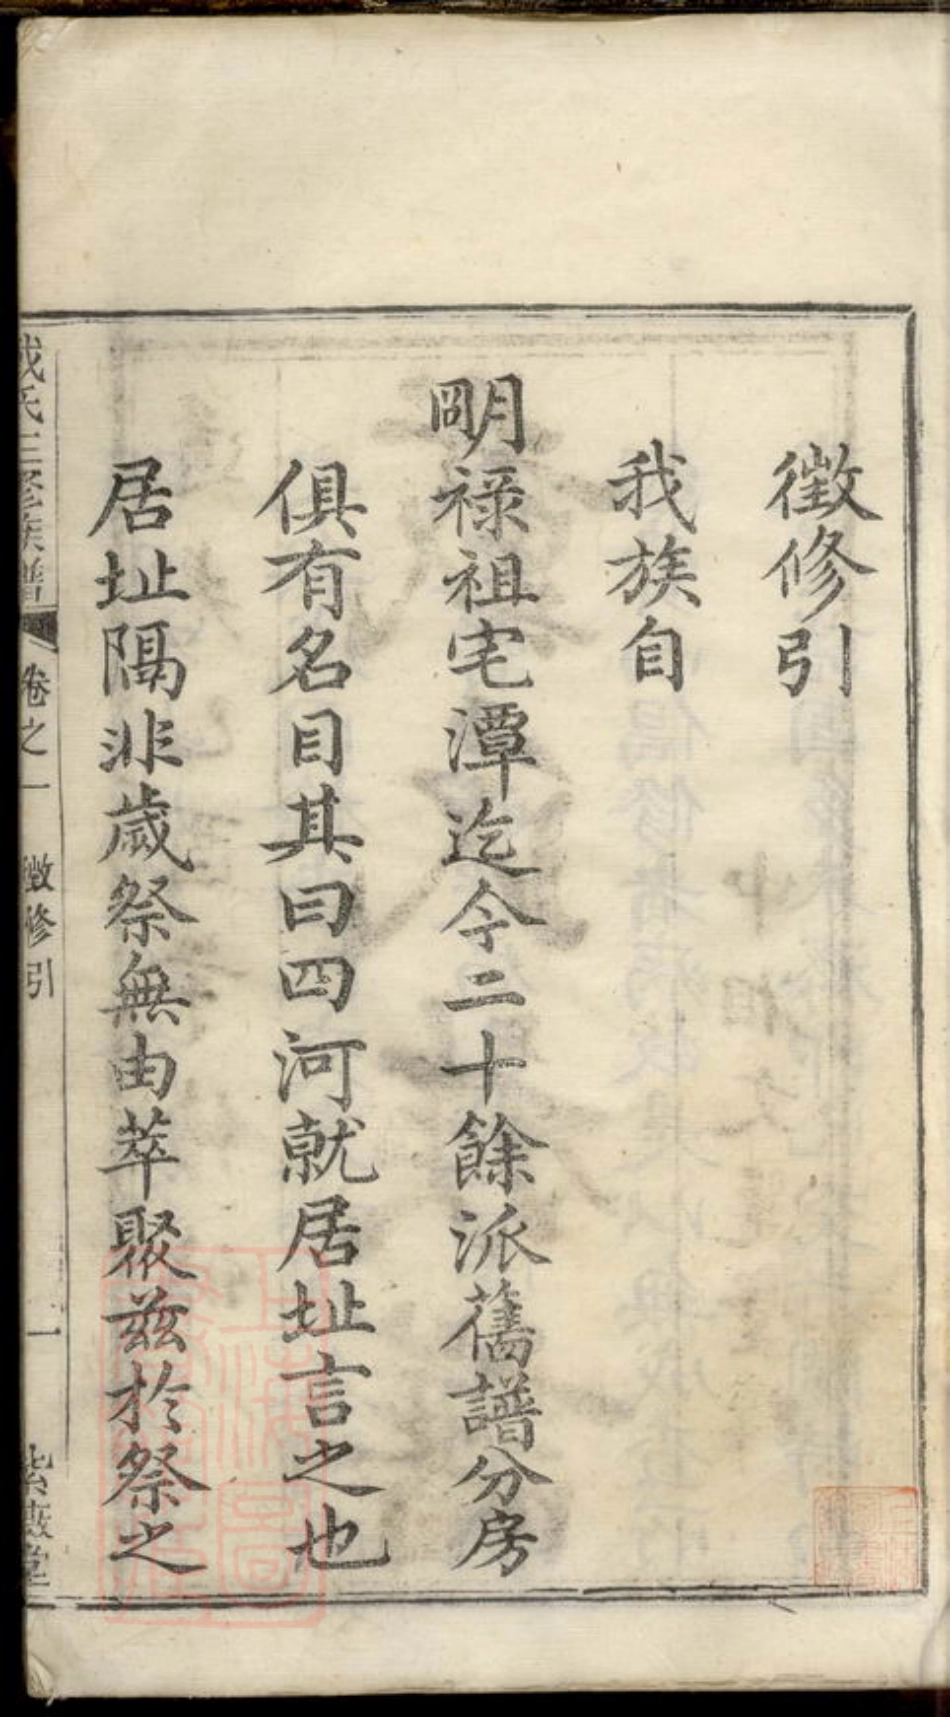 徵修引
我族自
明祿祖宅潭迄今二十餘派舊譜分房
俱有名目其曰四河就居址言之也
居址隔非歲祭無由萃聚茲於祭之
氏三修族譜 卷之一 徵修引 一 紫薇堂